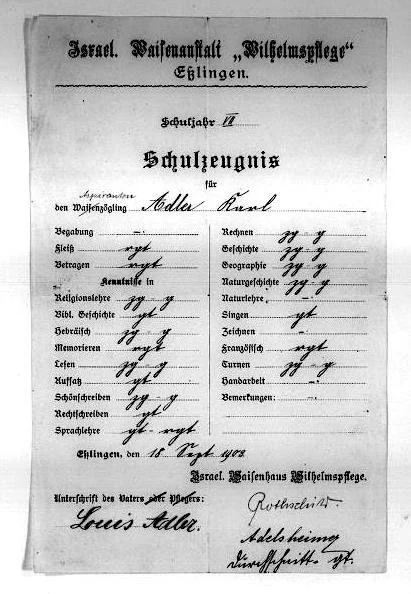 Israel. Waisenanstalt „Wilhelmspflege“
Eßlingen.
Schuljahr VII
Schulzeugnis
für
Aspiranten
den Waisenzögling Adler Karl
Begabung -.-
Fleiß rgt
Betragen rgt
Kenntnisse in
Religionslehre zg - g
Bibl. Geschichte gt
Hebräisch zg - g
Memorieren rgt
Lesen zg - g
Aufsatz gt
Schönschreiben zg - g
Rechtschreiben gt
Sprachlehre gt - rgt
Rechnen zg - g
Geschichte zg - g
Geographie zg - g
Naturgeschichte zg - g
Naturlehre -.-
Singen gt
Zeichnen -.-
Französisch rgt
Turnen zg - g
Handarbeit -.-
Bemerkungen: -.-
Eßlingen, den 18 Sept 1903
Israel. Waisenhaus Wilhelmspflege.
Unterschrift des Vaters oder Pflegers:
Rothschild.
Louis Adler.
Adelsheimer
Durchschnitt - gt.